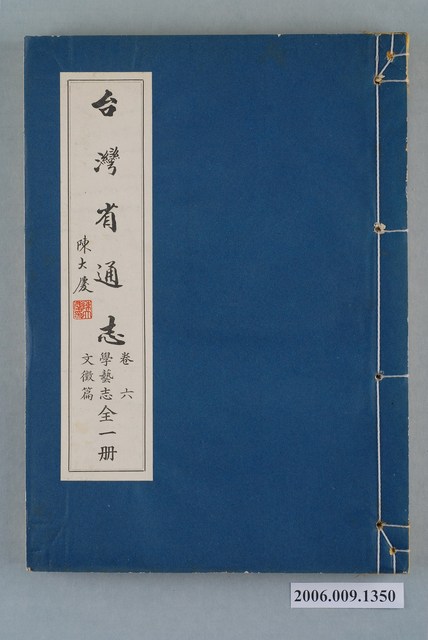 台灣省通志
陳大慶
卷六
學藝志
文徵篇
全一冊
2006.009.1350